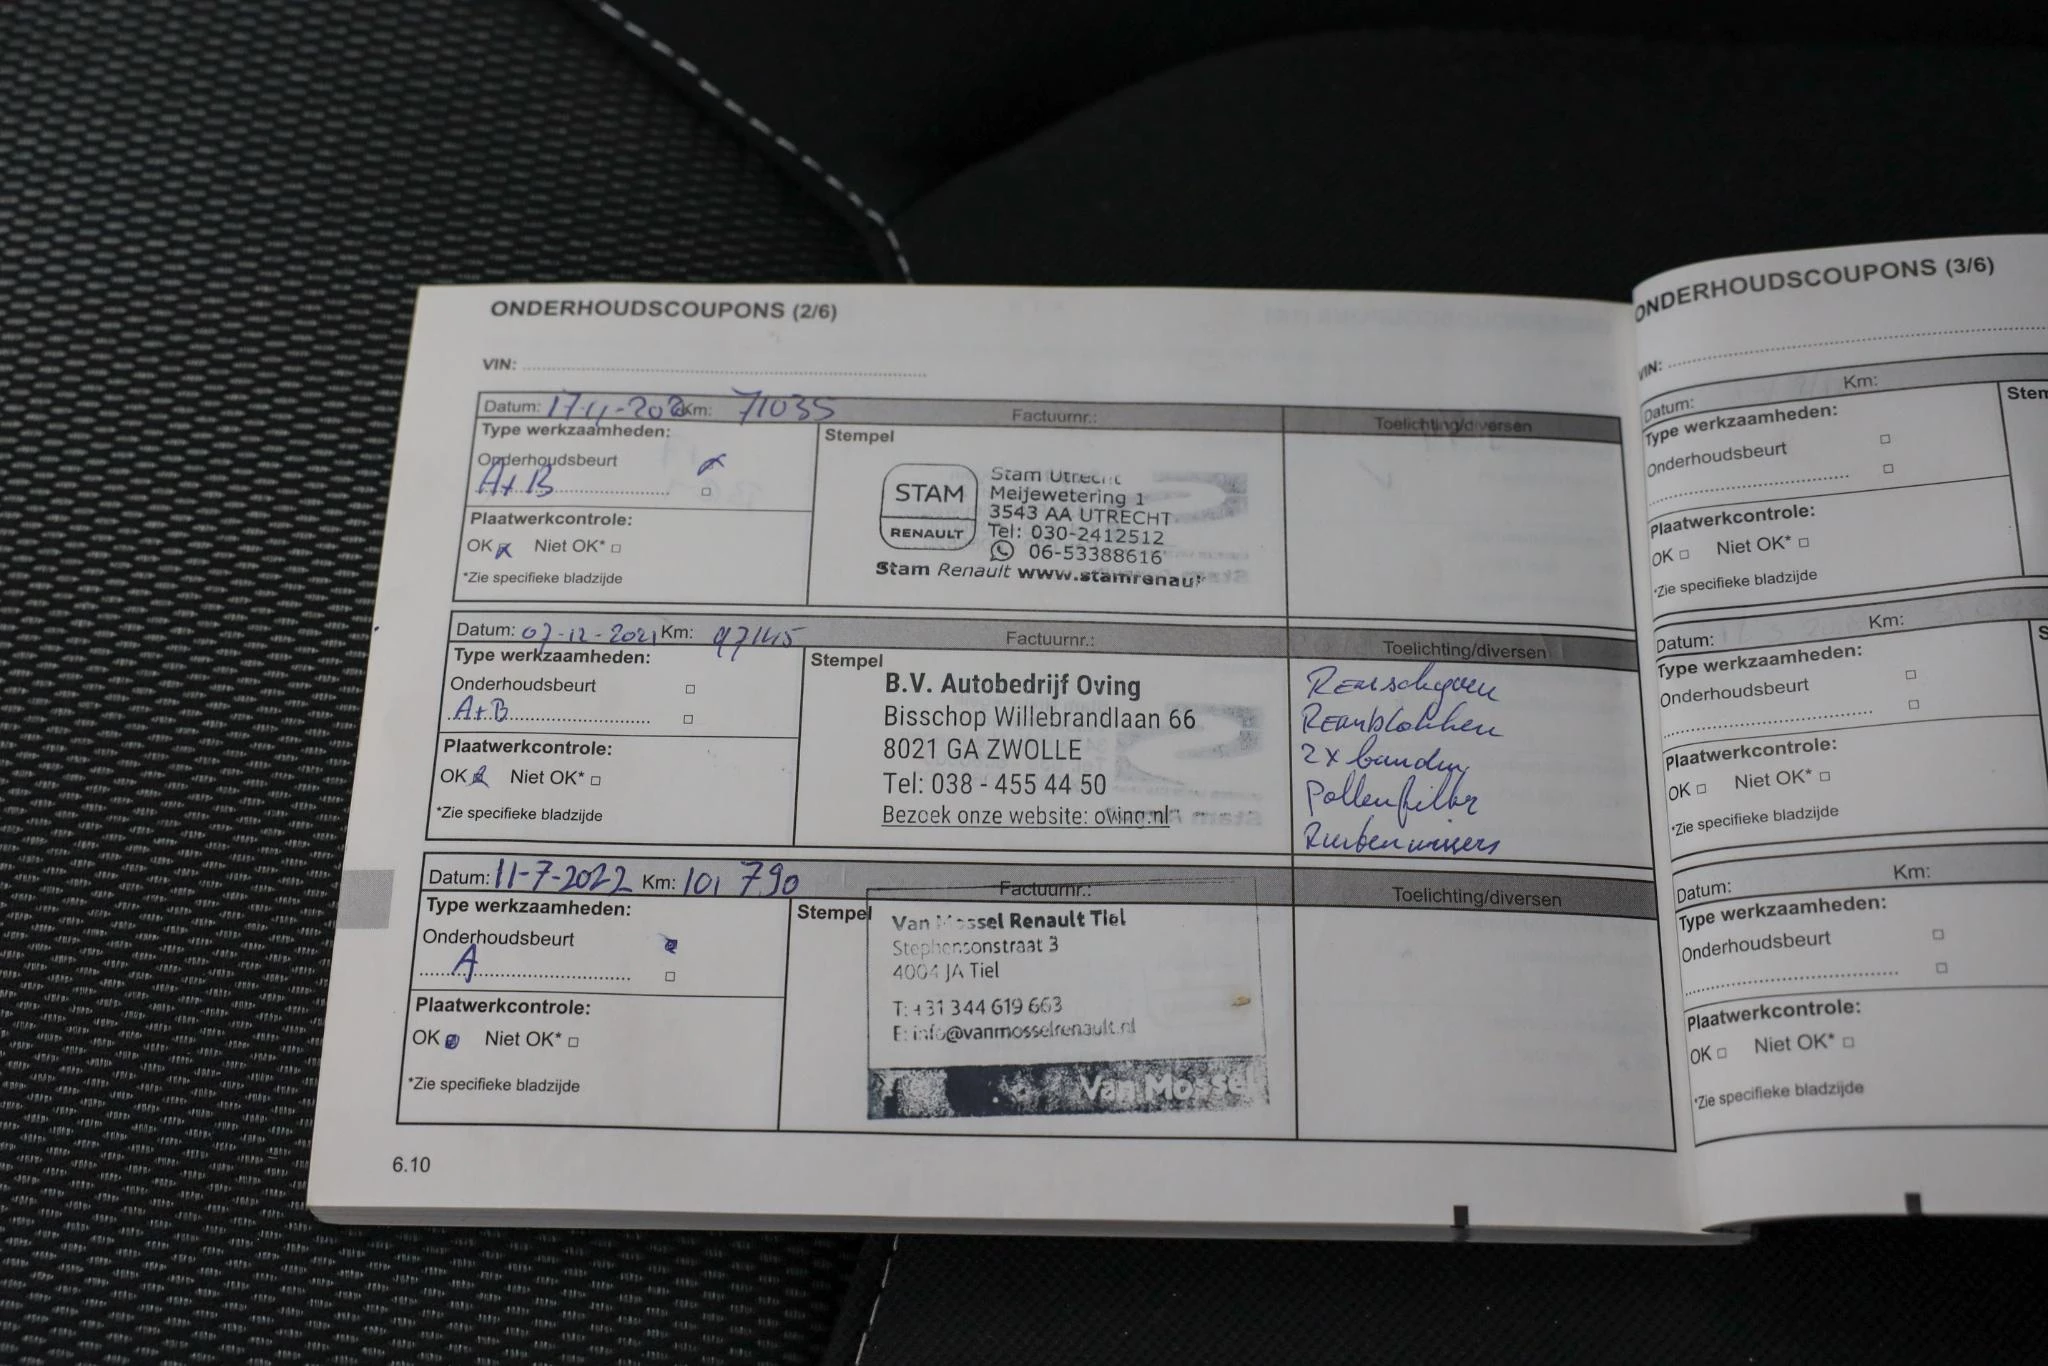 ONDERHOUDSCOUPONS (2/6)
VIN:
Datum: Km: 71035 Factuurnr.: Toelichting/diversen
Type werkzaamheden:
Stempel
Onderhoudsbeurt
A+B
Plaatwerkcontrole:
OK Niet OK*
*Zie specifieke bladzijde
STAM
RENAULT
Stam Utrecht
Meijewetering 1
3543 AA UTRECHT
Tel: 030-2412512
06-53388616
Stam Renault www.stamrenault
Datum: 07-12-2021 Km: 97145 Factuurnr.: Toelichting/diversen
Type werkzaamheden:
Stempel
Onderhoudsbeurt
A+B
Plaatwerkcontrole:
OK Niet OK*
*Zie specifieke bladzijde
B.V. Autobedrijf Oving
Bisschop Willebrandlaan 66
8021 GA ZWOLLE
Tel: 038 - 455 44 50
Bezoek onze website: oving.nl
Remschyven
Remblokken
2x banden
Pollenfilter
Ruitenwissers
Datum: 11-7-2022 Km: 101 790 Factuurnr.: Toelichting/diversen
Type werkzaamheden:
Stempel
Onderhoudsbeurt
A
Plaatwerkcontrole:
OK Niet OK*
*Zie specifieke bladzijde
Van Mossel Renault Tiel
Stephensonstraat 3
4004 JA Tiel
T: +31 344 619 663
E: info@vanmosselrenault.nl
Van Mossel
6.10
ONDERHOUDSCOUPONS (3/6)
VIN:
Datum: Km:
Type werkzaamheden:
Stem
Onderhoudsbeurt
Plaatwerkcontrole:
OK Niet OK*
*Zie specifieke bladzijde
Datum: Km:
Type werkzaamheden:
S
Onderhoudsbeurt
Plaatwerkcontrole:
OK Niet OK*
*Zie specifieke bladzijde
Datum: Km:
Type werkzaamheden:
Onderhoudsbeurt
Plaatwerkcontrole:
OK Niet OK*
*Zie specifieke bladzijde